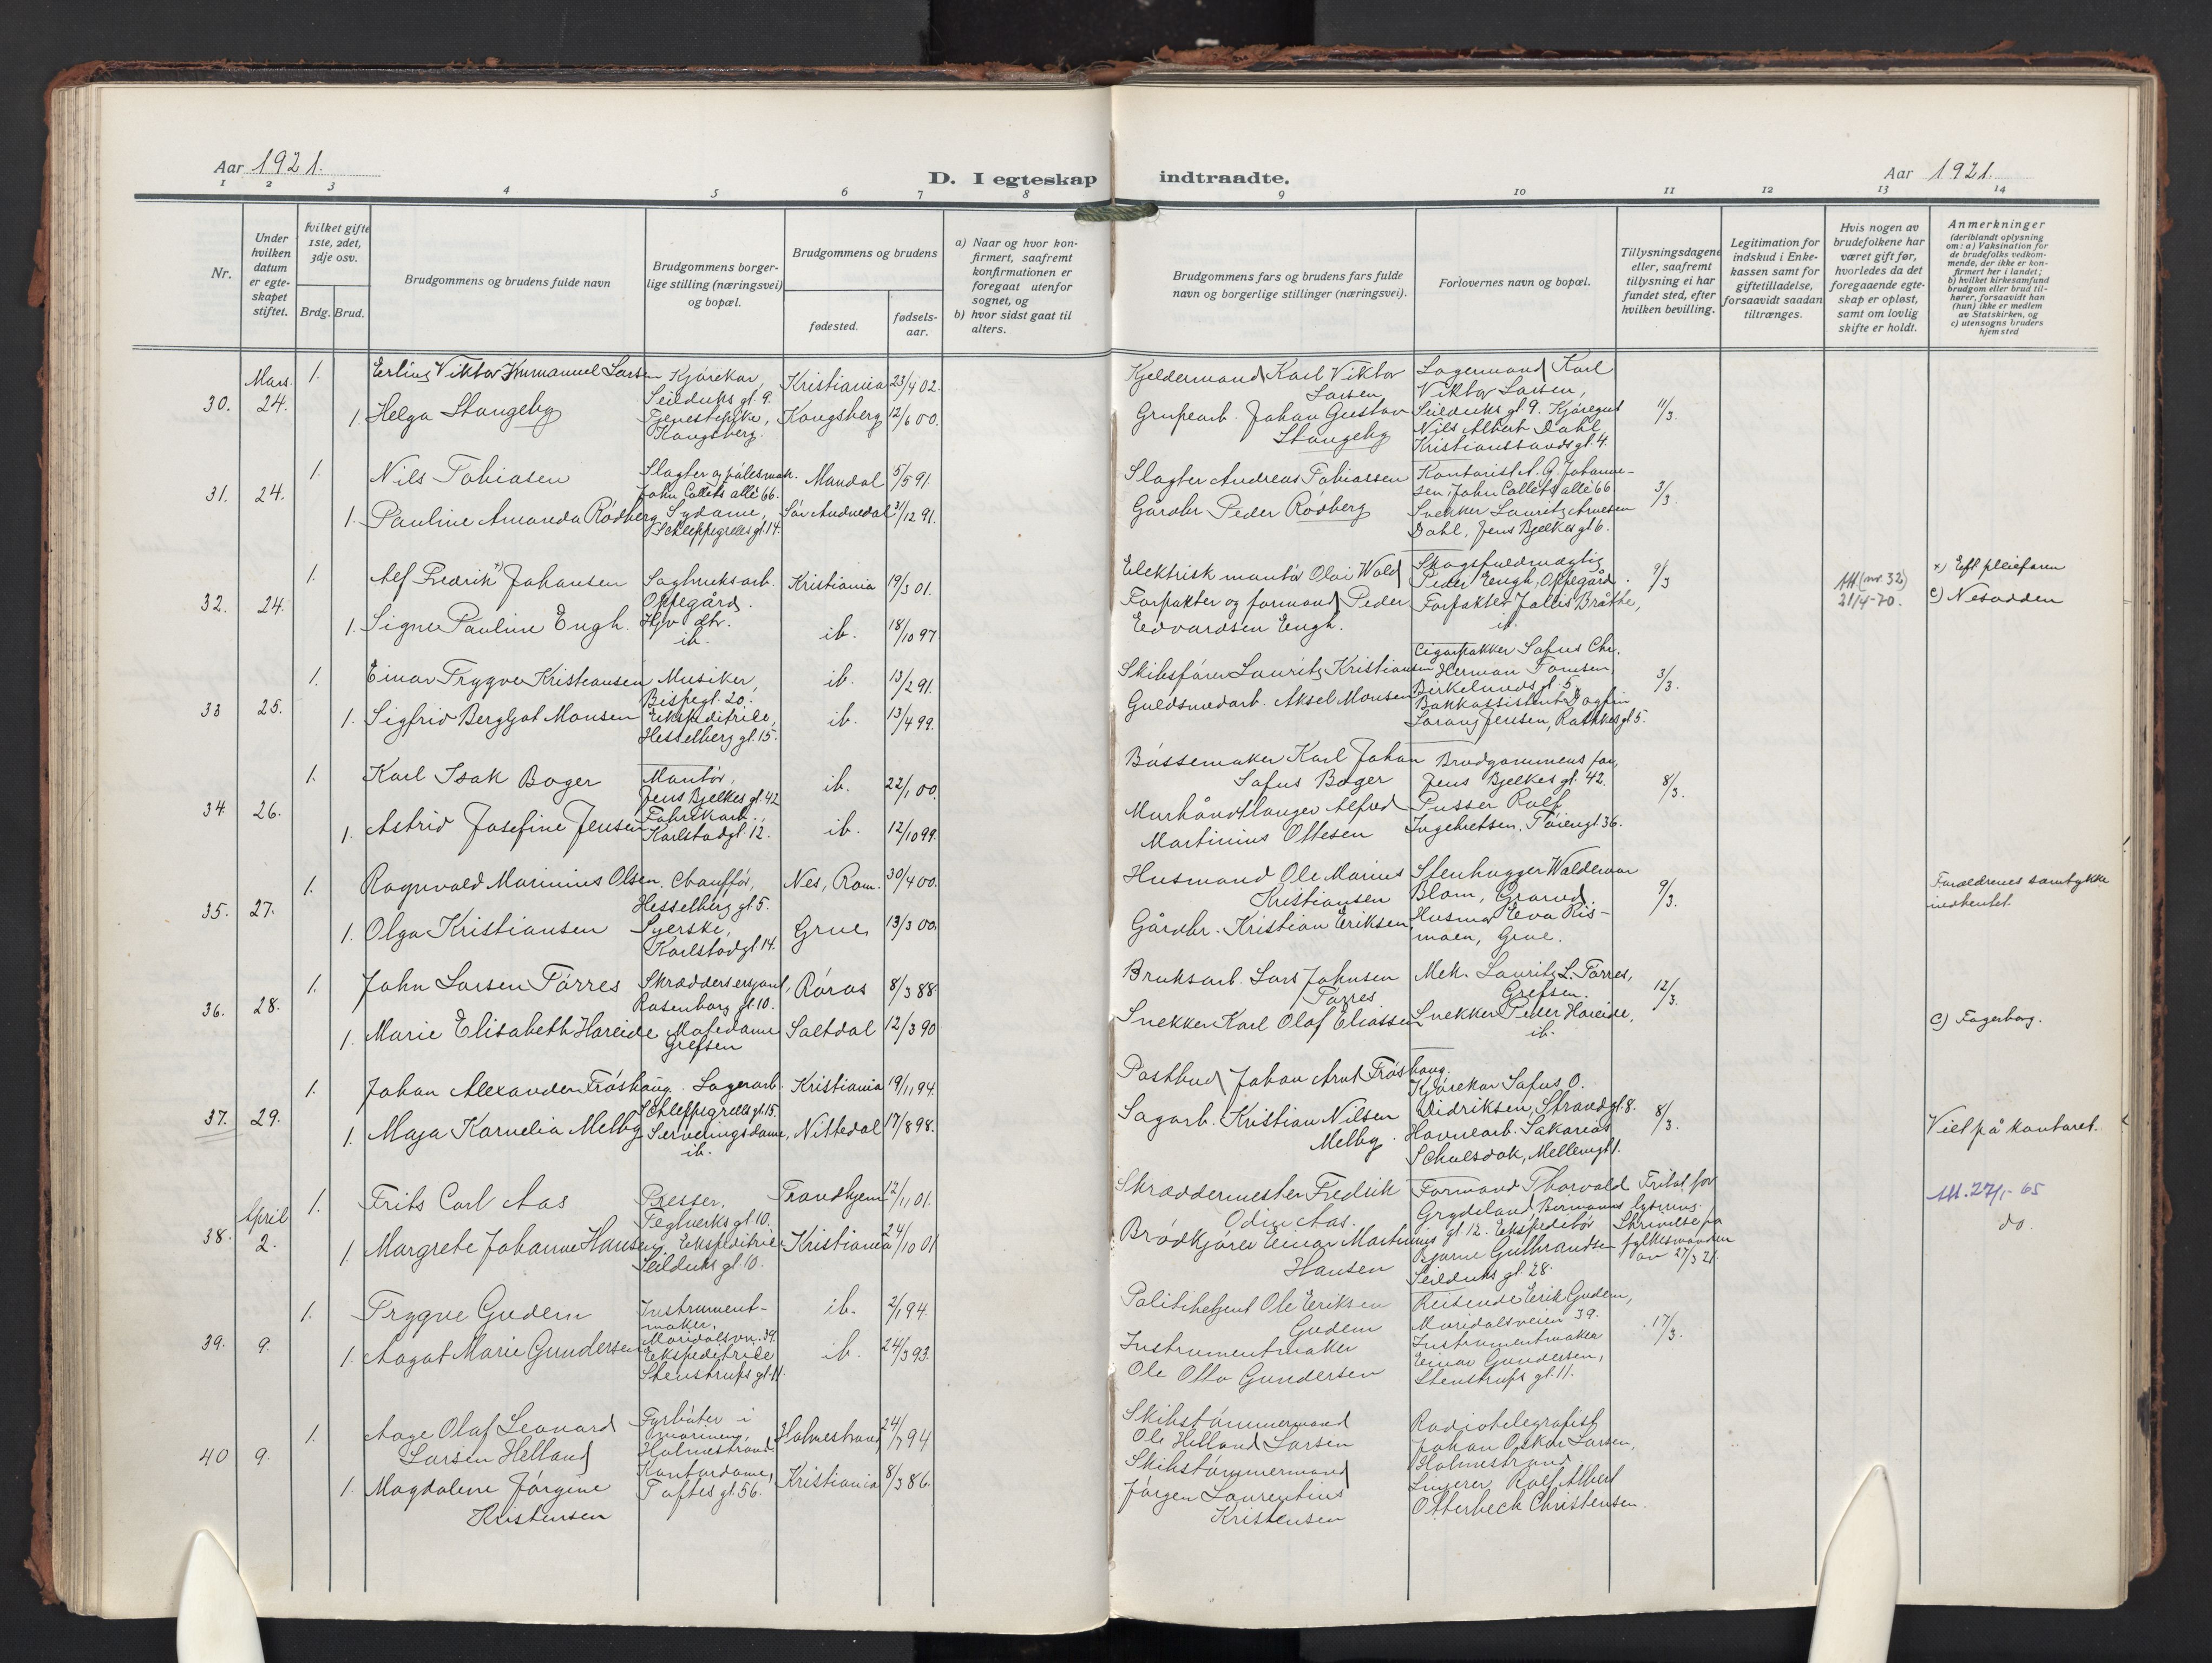 Aar 1921.
D. I egteskap indtraadte.
Aar 1921.
1 2 3 4 5 6 7 8 9 10 11 12 13 14
Nr.
Under hvilken datum er egteskapet stiftet.
hvilket gifte 1ste, 2det, 3dje osv.
Brdg. Brud.
Brudgommens og brudens fulde navn
Brudgommens borgerlige stilling (næringsvei) og bopæl.
Brudgommens og brudens
fødested.
fødselsaar.
a) Naar og hvor konfirmert, saafremt konfirmationen er foregaat utenfor sognet, og
b) hvor sidst gaat til alters.
Brudgommens fars og brudens fars fulde navn og borgerlige stillinger (næringsvei).
Forlovernes navn og bopæl.
Tillysningsdagene eller, saafremt tillysning ei har fundet sted, efter hvilken bevilling.
Legitimation for indskud i Enkekassen samt for giftetilladelse, forsaavidt saadan tiltrænges.
Hvis nogen av brudefolkene har været gift før, hvorledes da det foregaaende egteskap er opløst, samt om lovlig skifte er holdt.
Anmerkninger
(deriblandt oplysning om: a) Vaksination for de brudefolks vedkommende, der ikke er konfirmert her i landet; b) hvilket kirkesamfund brudgom eller brud tilhører, forsaavidt han (hun) ikke er medlem av Statskirken, og c) utensogns bruders hjemsted
30. Mars 24. 1. Erling Viktor Immanuel Larsen Kjørekar, Seilduks gt. 9. Kristiania 23/4 02. Kjeldermand Karl Viktor Larsen Lagermand Karl Viktor Larsen, Seilduks gt. 9. Kjøregut Nils Albert Dahl, Kristianssands gt. 4. 11/3.
1. Helga Stangeby Tjenestepike, Kongsberg. Kongsberg 12/6 00. Grubearb. Johan Gustav Stangeby
31. 24. 1. Nils Tobiasen Slagter og pølsemak. John Collets allé 66. Mandal 5/5 91. Slagter Andreas Tobiassen Kontorist A. G. Johannesen, John Collets allé 66. Snekker Lauritz Arnesen Dahl, Jens Bjelkes gt 6. 3/3
1. Pauline Amanda Rødberg Sydame, Schleppegrells gt. 14. Sør Audnedal 21/12 91. Gårdbr Peder Rødberg
32. 24. 1. Alf Fredrik x) Johansen Sagbruksarb. Oppegård. Kristiania 19/3 01. Elektrisk montør Olai Wold Skogsfuldmægtig Peder Engh, Oppegård. Forpakter Jallis Bråthe, ib. 9/3 (nr. 32) 21/4-70. x) Eft. pleiefaren
1. Signe Pauline Engh. Hjv dtr. ib. ib. 18/10 97 Forpakter og formand Peder Edvardsen Engh. c) Nesodden
33 25. 1. Einar Trygve Kristiansen Musiker, Bispegt. 20. ib. 13/2 91. Skibsfører Lauritz Kristiansen Cigarpakker Sofus Chr. Herman Tomsen, Birkelunds gt. 5. Bankassistent Dagfin Sarang Jensen, Rathkes gt 5. 3/3.
1. Sigfrid Bergljot Monsen Ekspeditrice, Hesselberg gt. 15. ib. 13/4 99. Guldsmedarb. Aksel Monsen
34 26. 1. Karl Isak Boger Montør, Jens Bjelkes gt. 42 ib. 22/1 00. Bøssemaker Karl Johan Sofus Boger Brudgommens far, Jens Bjelkes gt. 42. Pusser Rolf Ingebretsen, Tøiengt 36. 8/3.
1. Astrid Josefine Jensen Fabrikarb., Karlstadgt. 12. ib. 12/10 99. Murhåndtlanger Alfred Martinius Ottesen
35. 27. 1. Ragnvald Marinius Olsen. Chauffør, Hesselberg gt. 5. Nes, Rom. 30/4 00. Husmand Ole Marius Kristiansen Stenhugger Waldemar Blom, Grorud. Husmor Eva Rismoen, Grue. 9/3. Forældrenes samtykke indhentet.
1. Olga Kristiansen Syerske, Karlstadgt. 14. Grue 13/3 00. Gårdbr. Kristian Eriksen
36. 28. 1. John Larsen Tørres Skræddersersjant, Rosenborg gt. 10. Røros 8/3 88. Bruksarb. Lars Johnsen Tørres Mek. Lauritz L. Tørres, Grefsen. Snekker Peder Hareide, ib. 12/3.
1. Marie Elisabeth Hareide Motedame Grefsen Saltdal 12/3 90 Snekker Karl Olaf Eliassen c) Fagerborg.
37. 29. 1. Johan Alexander Frøshaug. Lagerarb. Schleppegrells gt. 15. Kristiania 19/11 94. Postbud Johan Arnt Frøshaug. Kjørekar Sofus O. Didriksen, Strandgt. 8. Havnearb. Sakarias Schulsdok, Mellemgt 1. 8/3. Viet på kontoret.
1. Maja Kornelia Melby Serveringsdame, ib. Nittedal 17/8 98. Sagarb. Kristian Nilsen Melby.
38. April 2. 1. Frits Carl Aas Presser, Teglverks gt. 10. Trondhjem 12/1 01. Skræddermester Fredrik Odin Aas. Formand Thorvald Grydeland, Bermanns gt. 12. Ekspeditør Bjarne Gulbrandsen Seilduks gt. 28. Fritat for lysning. Skrivelse fra fylkesmanden av 27/3 21. Att. 27/1-65 do.
1. Margrete Johanne Hansen. Ekspeditrice Seilduks gt. 10. Kristiania 24/10 01 Brødkjører Einar Martinius Hansen
39. 9. 1. Trygve Gudem Instrumentmaker, Maridalsvn. 39. ib. 2/1 94. Politibetjent Ole Eriksen Gudem Reisende Erik Gudem, Maridalsveien 39. Instrumentmaker Einar Gundersen, Stenstrups gt. 11. 17/3.
1. Aagot Marie Gundersen Ekspeditrice Stenstrups gt. 11. ib. 24/3 93. Instrumentmaker Ole Otto Gundersen
40 9. 1. Aage Olaf Leonard Larsen Helland Fyrbøter i marinen, Holmestrand. Holmestrand 24/7 94 Skibstømmermand Ole Helland Larsen Radiotelegrafist Johan Oskar Larsen, Holmestrand Rolf Albert Otterbeck Christensen.
1. Magdalene Jørgine Kristensen Kontordame, Toftes gt. 56. Kristiania 8/3 86. Skibstømmermand Jørgen Laurentius Kristensen